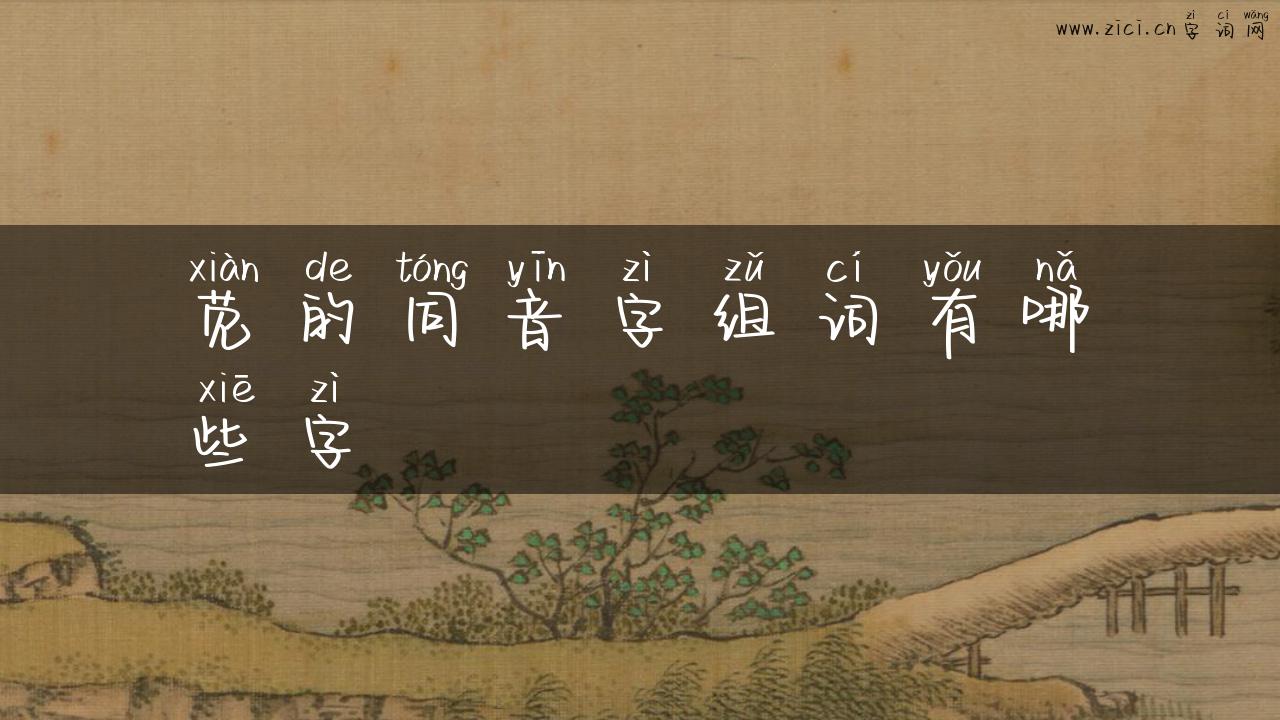 zì cí wǎng
www.zici.cn 字词网
xiàn de tóng yīn zì zǔ cí yǒu nǎ
苋的同音字组词有哪
xiē zì
些字